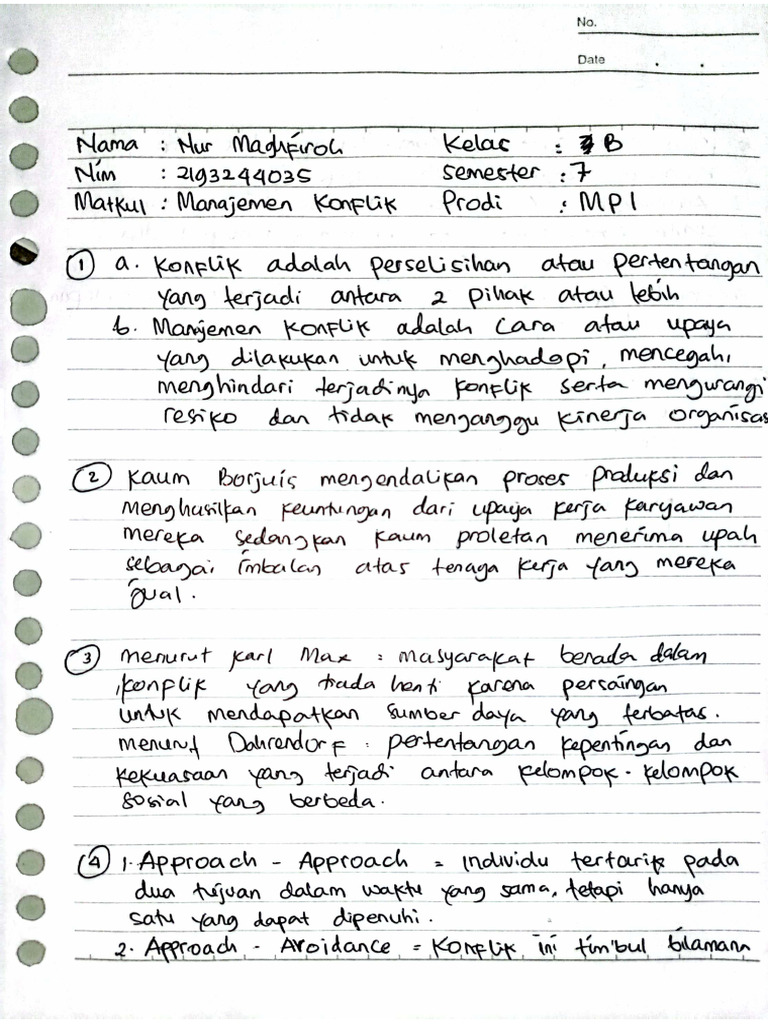 No.
Date . .
Nama : Nur Maghfiroh Kelas : 7B
Nim : 2193244035 Semester : 7
Matkul : Manajemen Konflik Prodi : MPI
1 a. Konflik adalah perselisihan atau pertentangan
yang terjadi antara 2 pihak atau lebih
b. Manjemen Konflik adalah cara atau upaya
yang dilakukan untuk menghadapi, mencegah,
menghindari terjadinya konflik serta mengurangi
resiko dan tidak menganggu kinerja organisas
2 Kaum Borjuis mengendalikan proses produksi dan
menghasilkan keuntungan dari upaya kerja karyawan
mereka sedangkan kaum proletan menerima upah
sebagai imbalan atas tenaga kerja yang mereka
jual.
3 menurut Karl Max : masyarakat berada dalam
konflik yang tiada henti karena persaingan
untuk mendapatkan sumber daya yang terbatas.
menurut Dahrendorf : pertentangan kepentingan dan
kekuasaan yang terjadi antara kelompok-kelompok
sosial yang berbeda.
4 1. Approach - Approach = individu tertarik pada
dua tujuan dalam waktu yang sama, tetapi hanya
satu yang dapat dipenuhi.
2. Approach - Avoidance = Konflik ini timbul bilamana